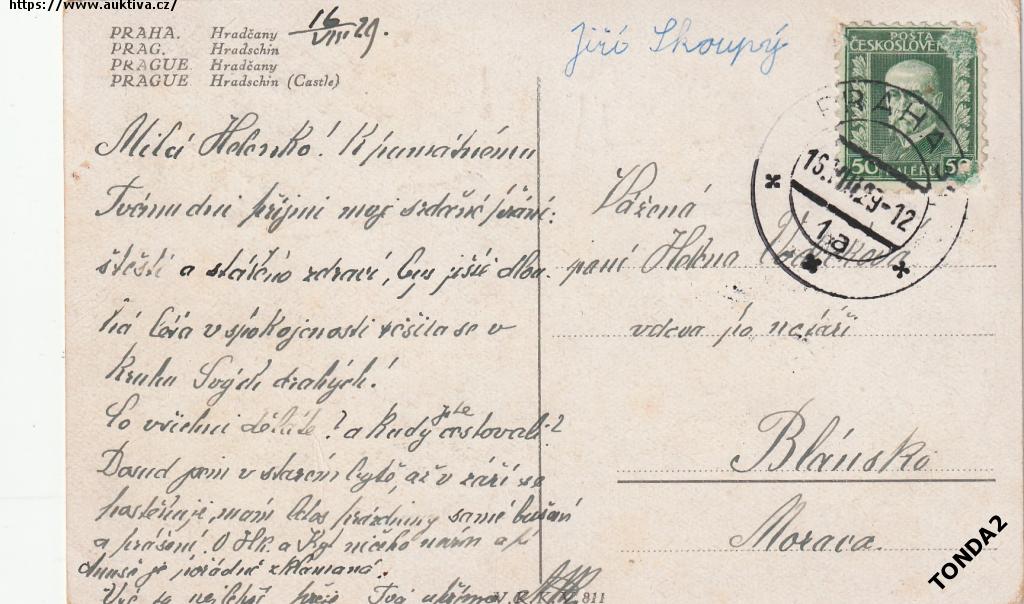 https://www.auktiva.cz/
PRAHA. Hradčany
PRAG. Hradschin
PRAGUE. Hradčany
PRAGUE Hradschin (Castle)
16/VIII 29.
Jiří Skoupý
POSTA
ČESKOSLOVEN
50 HALÉŘŮ 50
PRAHA
16.VIII.29-12
1a
Milá Helenko! K památnému
Tvému dni přijmi moje srdečné přání:
štěstí a stálého zdraví, bys ještě dlou
há léta v spokojenosti těšila se v
kruhu Svých drahých!
Co všichni děláte? a kudy jste cestovali?
Dosud jsem v starém bytě, až v září se
, mám letos prázdniny samé bušení
a prášení. O Hk. a Ký ničeho nevím a p.
je pořádně zklamaná.
Tvá upřímná
Vážená
paní Helena
vdova po notáři
Blánsko
Morava.
811
TONDA2